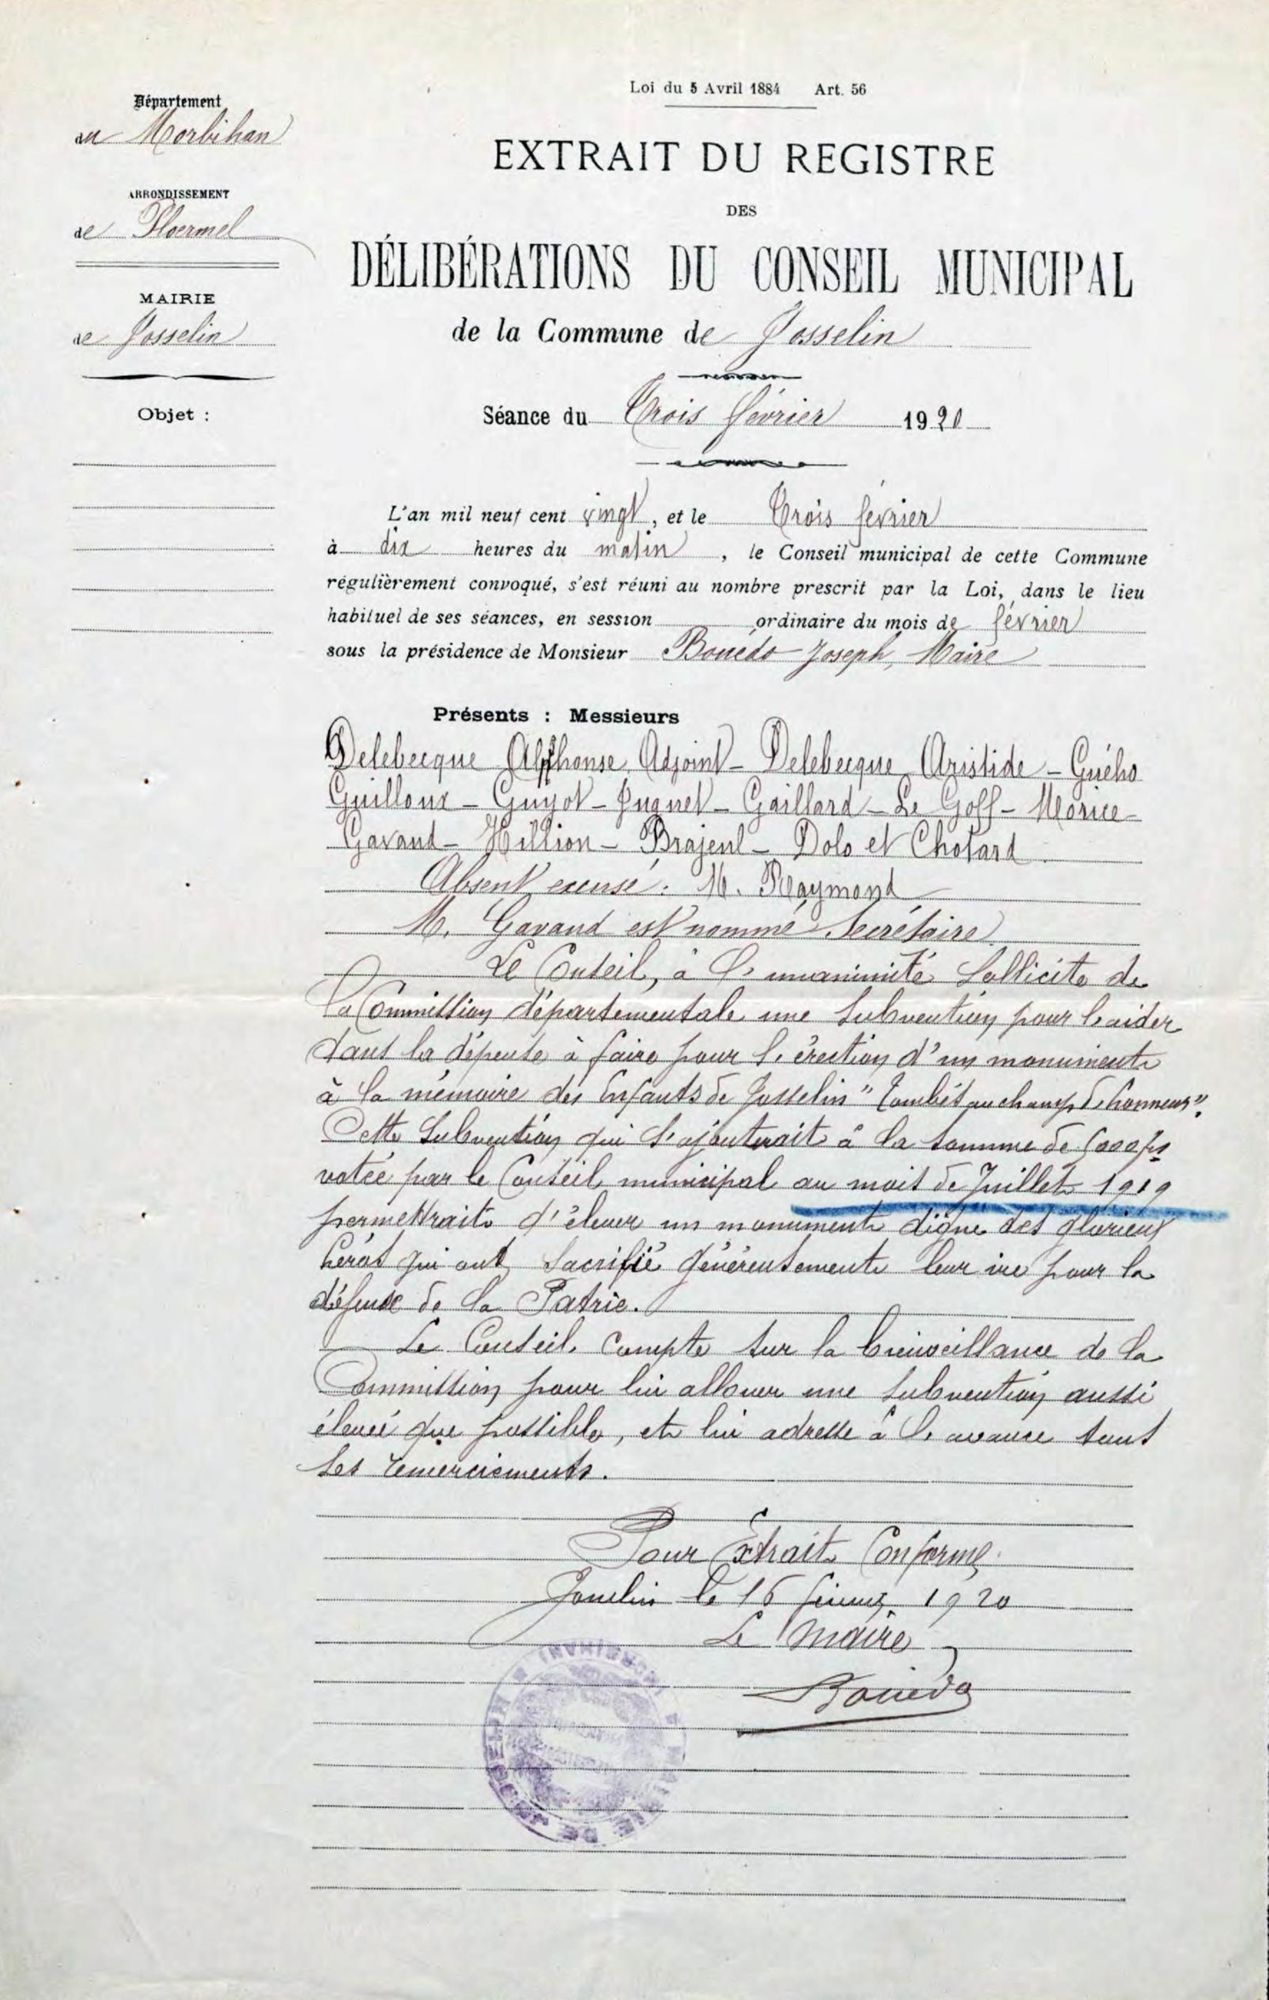 Loi du 5 Avril 1884 Art. 56
Département
du Morbihan
ARRONDISSEMENT
de Ploermel
MAIRIE
de Josselin
Objet :
EXTRAIT DU REGISTRE
DES
DÉLIBÉRATIONS DU CONSEIL MUNICIPAL
de la Commune de Josselin
Séance du Trois février 1920
L'an mil neuf cent vingt, et le Trois février
à dix heures du matin, le Conseil municipal de cette Commune
régulièrement convoqué, s'est réuni au nombre prescrit par la Loi, dans le lieu
habituel de ses séances, en session ordinaire du mois de février
sous la présidence de Monsieur Bouëdo Joseph, Maire
Présents : Messieurs
Delebecque Alphonse, Adjoint - Delebecque Aristide - Guého
Guilloux - Guyot - Juguet - Gaillard - Le Goff - Morice -
Gavaud - Hillion - Brajeul - Dolo et Chotard
Absent excusé : M. Raymond
M. Gavaud est nommé Secrétaire
Le Conseil, à l'unanimité sollicite de
la Commission départementale une subvention pour l'aider
dans la dépense à faire pour l'érection d'un monument
à la mémoire des Enfants de Josselin "Tombés au champ d'honneur".
Cette subvention qui s'ajouterait à la somme de 5000 frs
votée par le Conseil municipal au mois de Juillet 1919
permettrait d'élever un monument digne des glorieux
héros qui ont sacrifié généreusement leur vie pour la
défense de la Patrie.
Le Conseil compte sur la bienveillance de la
Commission pour lui allouer une subvention aussi
élevée que possible, et lui adresse à l'avance tous
ses remerciements.
Pour Extrait Conforme
Josselin le 16 février 1920
Le Maire
Bouëdo
MAIRIE DE JOSSELIN
(MORBIHAN)